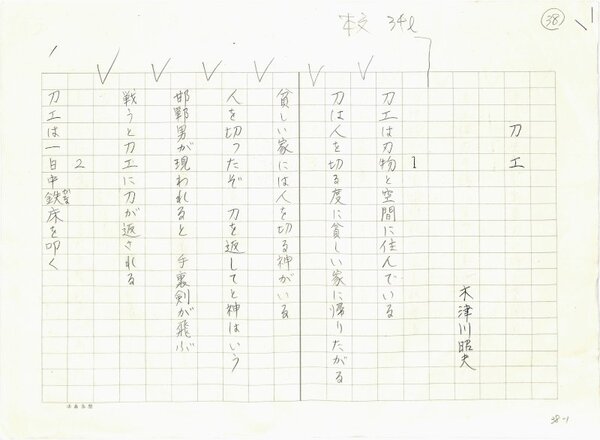 本文 34ℓ
38
刀工
木津川昭夫
1
刀工は刃物と空間に住んでいる
刀は人を切る度に貧しい家に帰りたがる
貧しい家には人を切る神がいる
人を切ったぞ 刀を返してと神はいう
邯鄲男が現われると 手裏剣が飛ぶ
戦うと刀工に刀が返される
2
刀工は一日中鉄床を叩く
38-1